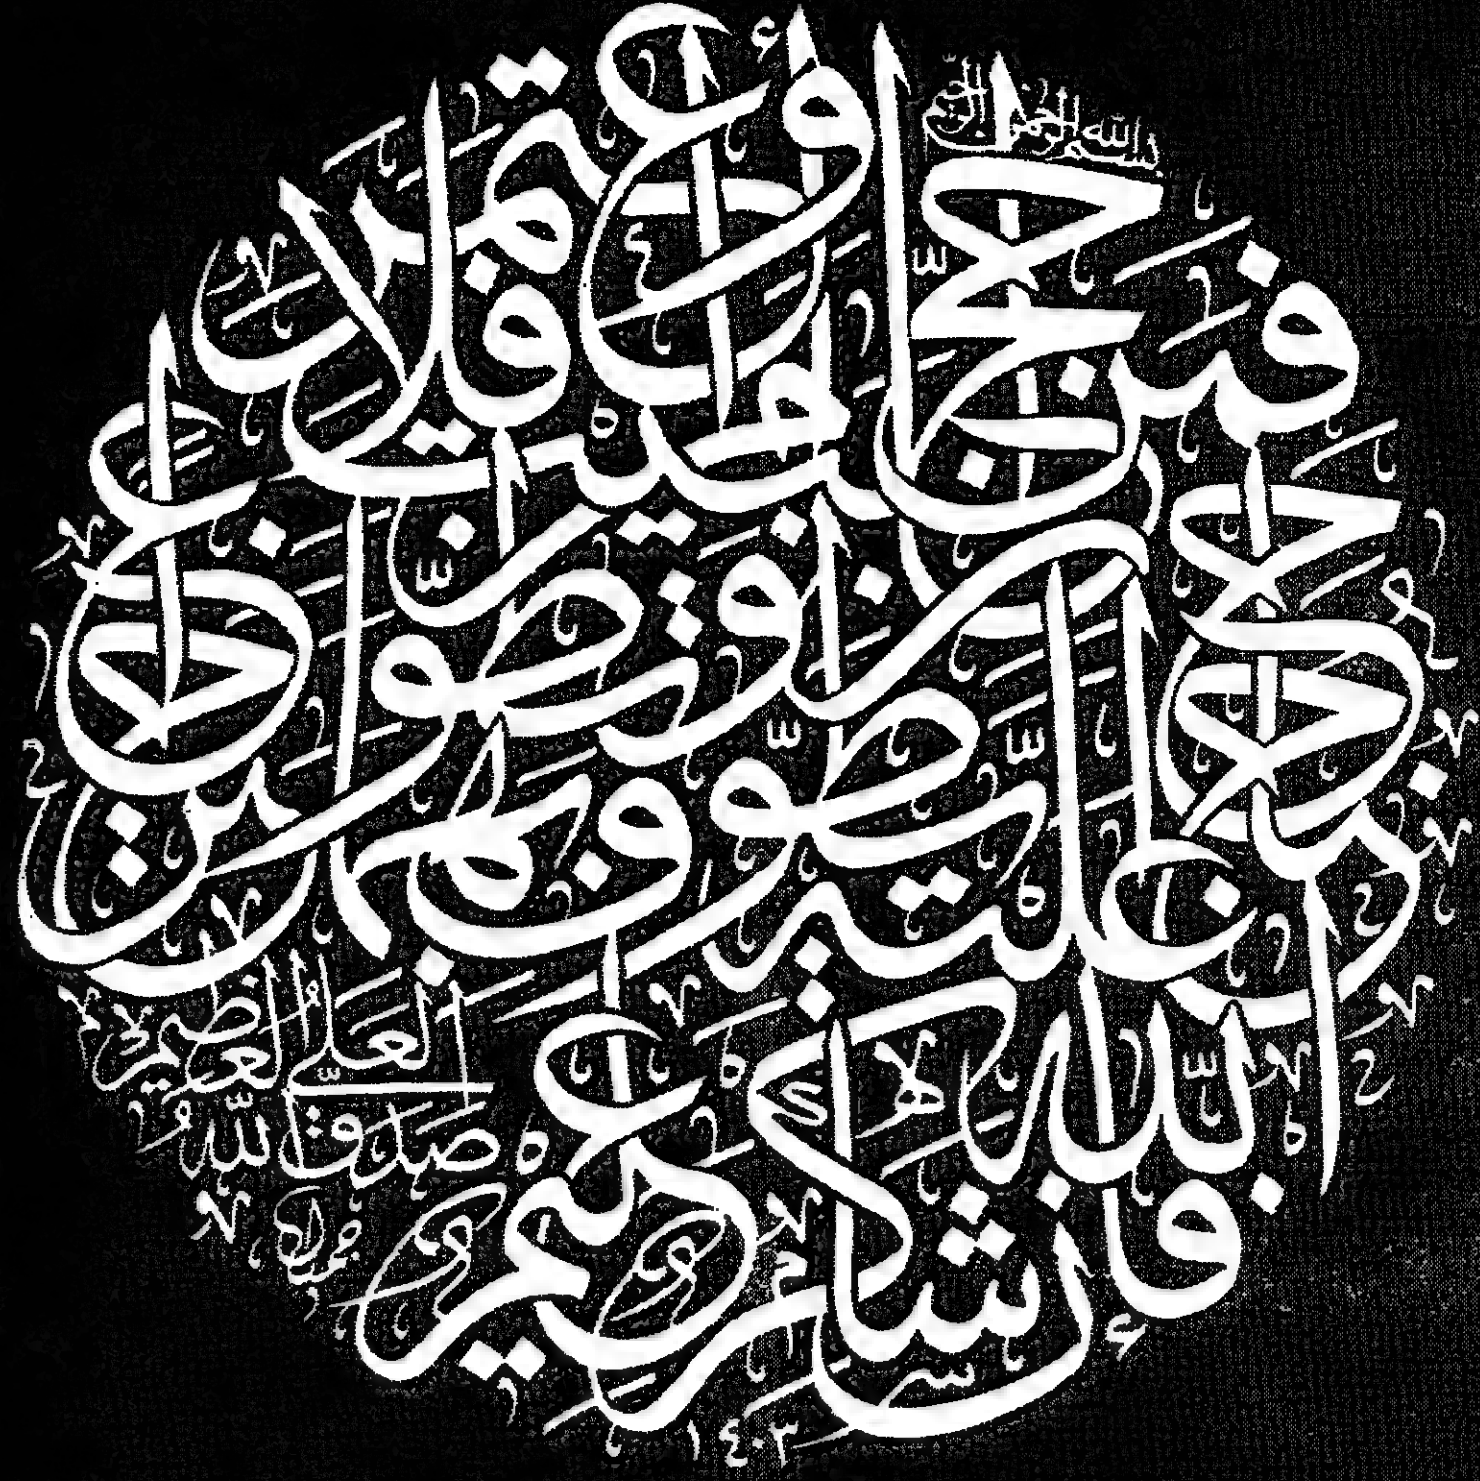 بسم الله الرحمن الرحيم
فمن حج البيت أو اعتمر فلا
جناح عليه أن يطوف بهما ومن تطوع خيرا
فإن الله شاكر عليم
صدق الله العلي العظيم
١٤٠٣